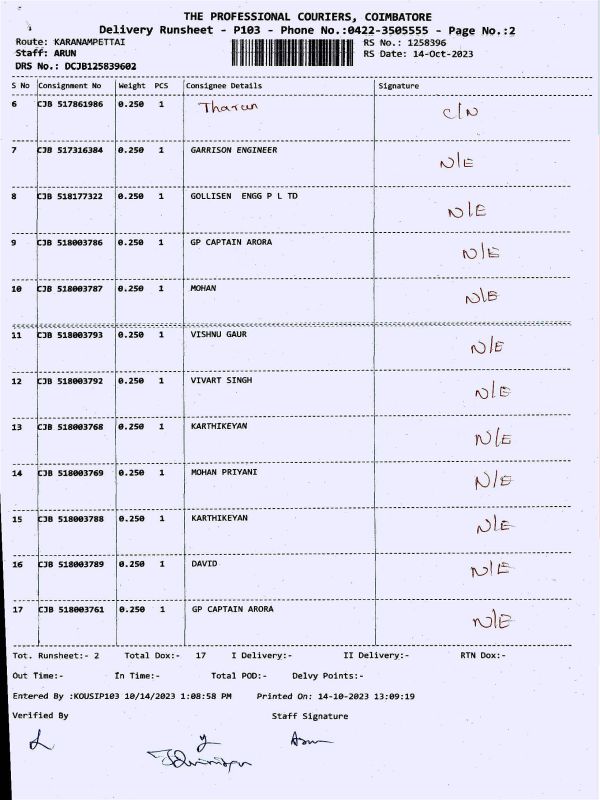 THE PROFESSIONAL COURIERS, COIMBATORE
Delivery Runsheet - P103 - Phone No.:0422-3505555 - Page No.:2
Route: KARANAMPETTAI RS No.: 1258396
Staff: ARUN RS Date: 14-Oct-2023
DRS No.: DCJB125839602
S No Consignment No Weight PCS Consignee Details Signature
6 CJB 517861986 0.250 1 Tharun C/N
7 CJB 517316384 0.250 1 GARRISON ENGINEER N/E
8 CJB 518177322 0.250 1 GOLLISEN ENGG P L TD N/E
9 CJB 518003786 0.250 1 GP CAPTAIN ARORA N/E
10 CJB 518003787 0.250 1 MOHAN N/E
11 CJB 518003793 0.250 1 VISHNU GAUR N/E
12 CJB 518003792 0.250 1 VIVART SINGH N/E
13 CJB 518003768 0.250 1 KARTHIKEYAN N/E
14 CJB 518003769 0.250 1 MOHAN PRIYANI N/E
15 CJB 518003788 0.250 1 KARTHIKEYAN N/E
16 CJB 518003789 0.250 1 DAVID N/E
17 CJB 518003761 0.250 1 GP CAPTAIN ARORA N/E
Tot. Runsheet:- 2 Total Dox:- 17 I Delivery:- II Delivery:- RTN Dox:-
Out Time:- In Time:- Total POD:- Delvy Points:-
Entered By :KOUSIP103 10/14/2023 1:08:58 PM Printed On: 14-10-2023 13:09:19
Verified By Staff Signature